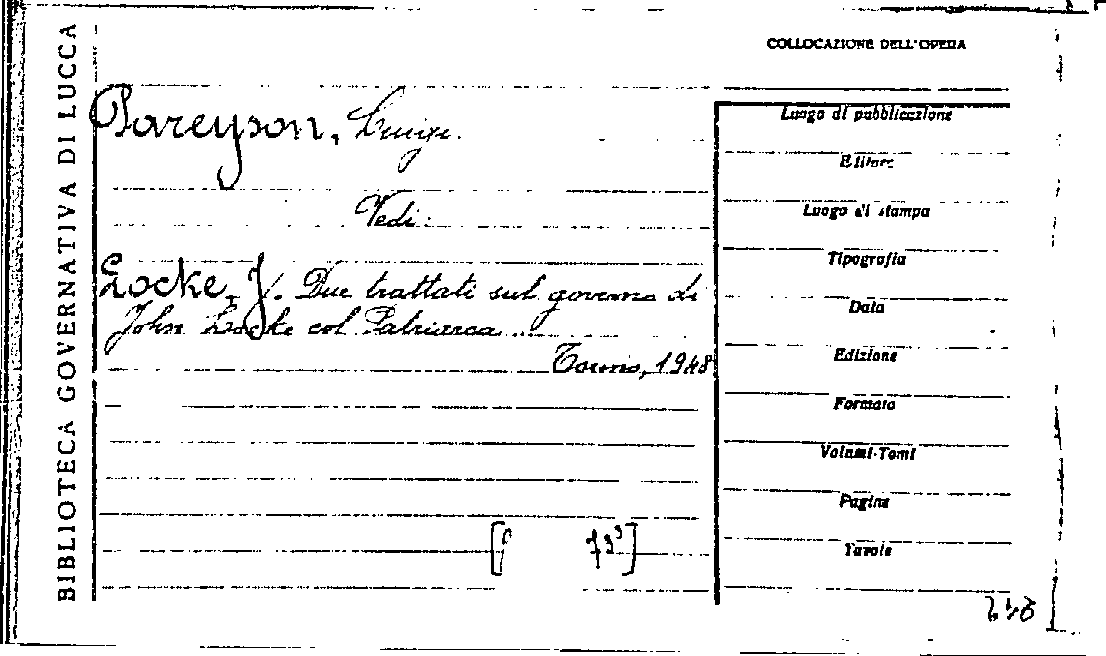 BIBLIOTECA GOVERNATIVA DI LUCCA
COLLOCAZIONE DELL'OPERA
Pareyson, Luigi.
Vedi:
Locke, J. Due trattati sul governo di
John Locke col Patriarca...
Torino, 1948
Luogo di pubblicazione
Editore
Luogo di stampa
Tipografia
Data
Edizione
Formato
Volumi-Tomi
Pagine
Tavole